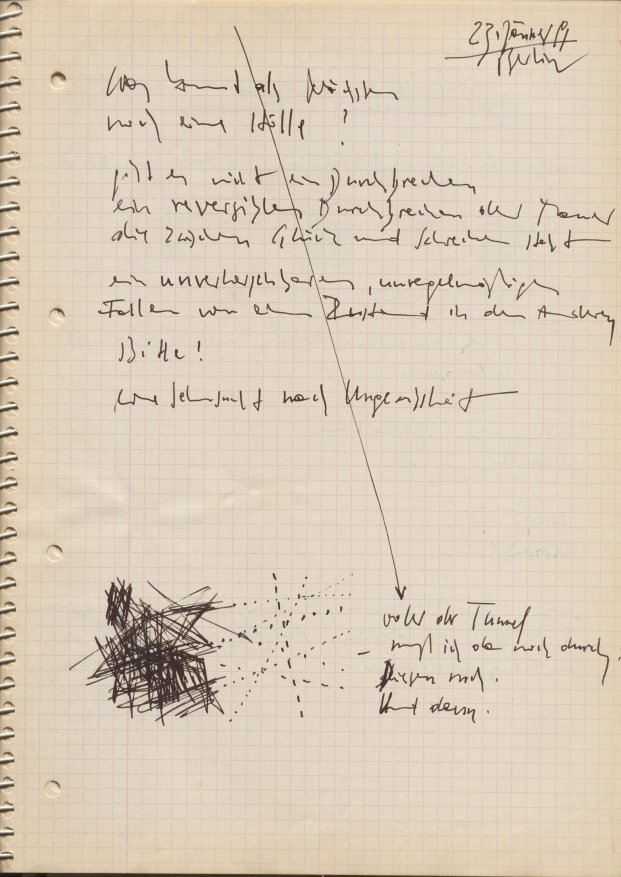 23. Jänner
Berlin
Was kommt als nächstes
noch eine Hölle?
gibt es nicht ein Durchbrechen
ein Durchbrechen der Mauer
die zwischen Glück und Schrecken steht
ein unvorhersehbares, unregelmäßiges
Fallen von einem Zustand in den Anderen
Bitte!
eine Sehnsucht nach Ungewißheit
oder der Tunnel
- muß ich da noch durch.
Diesen noch.
Und dann.